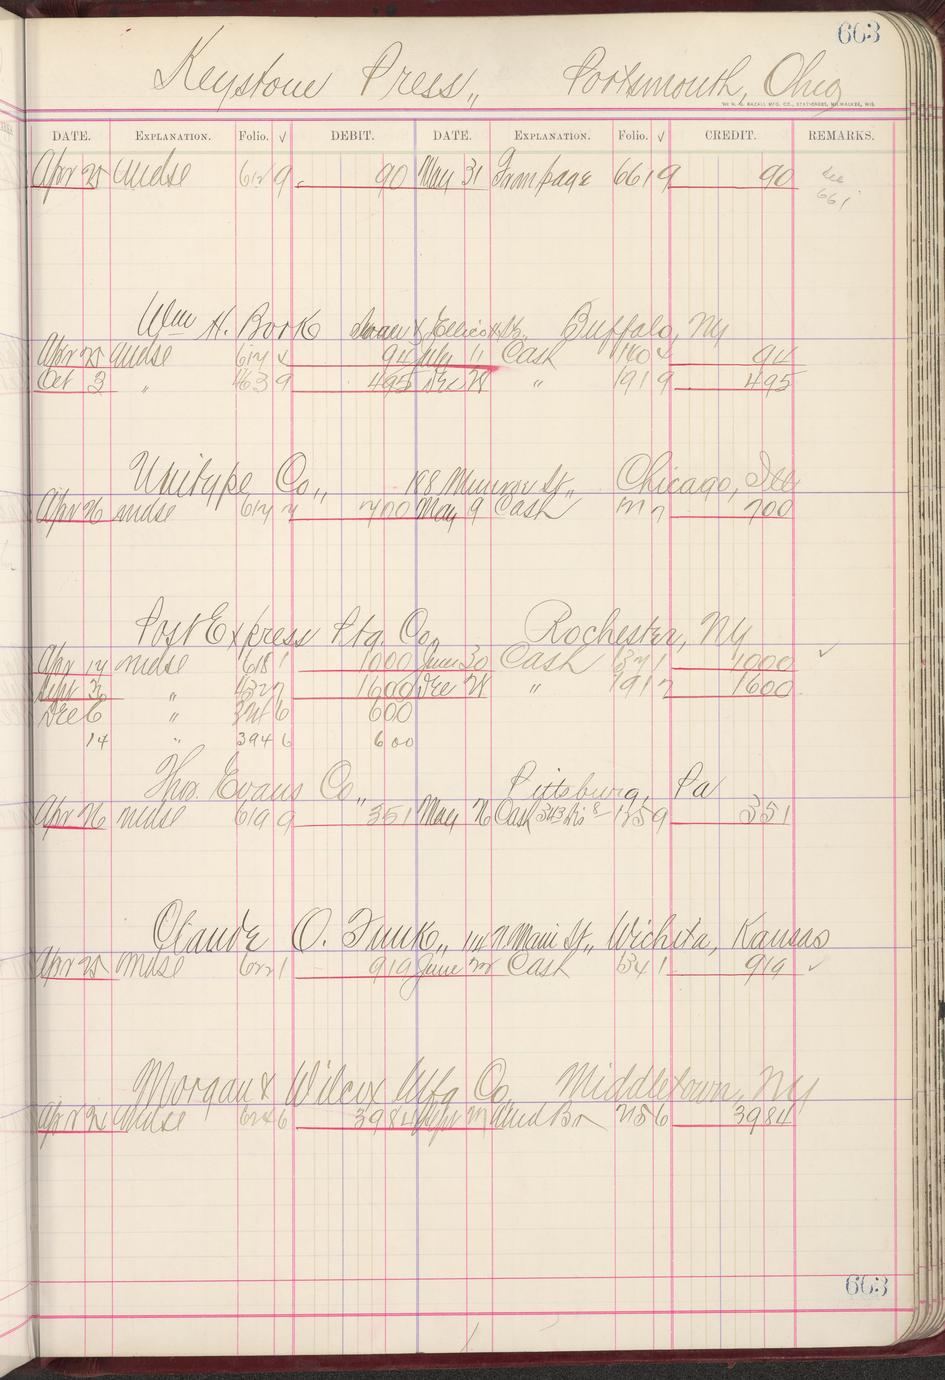 663
Keystone Press,, Portsmouth, Ohio
THE H. G. RAZALL MFG. CO., STATIONERS, MILWAUKEE, WIS.
DATE. EXPLANATION. Folio. √ DEBIT. DATE. EXPLANATION. Folio. √ CREDIT. REMARKS.
Apr 25 mdse 612 9 90 May 31 From page 661 9 90 see
661
Wm H. Bork Swan & Ellicott St. Buffalo, NY
Apr 25 mdse 94 July 11 Cash 94
Oct 3 " 463 9 495 Dec " 191 9 495
Unitype Co,, 188 Monroe St,, Chicago, Ill
Apr 26 mdse 617 7 700 May 9 Cash 7 700
Post Express Ptg. Co,, Rochester, NY
Apr 14 mdse 618 1 1000 June 30 Cash 1 1000 ✓
Sept " 7 1600 Dec " 191 7 1600
Dec 6 " 6 600
14 " 394 6 600
Thos. Evans Co,, Pittsburg, Pa
Apr 26 mdse 619 9 351 May 26 Cash 9 351
Claude O. Funk,, N. Main St,, Wichita, Kansas
Apr 25 mdse 622 1 919 June 22 Cash 341 1 919 ✓
Morgan & Wilcox Mfg Co, Middletown, NY
Apr mdse 6 3984 6 3984
663